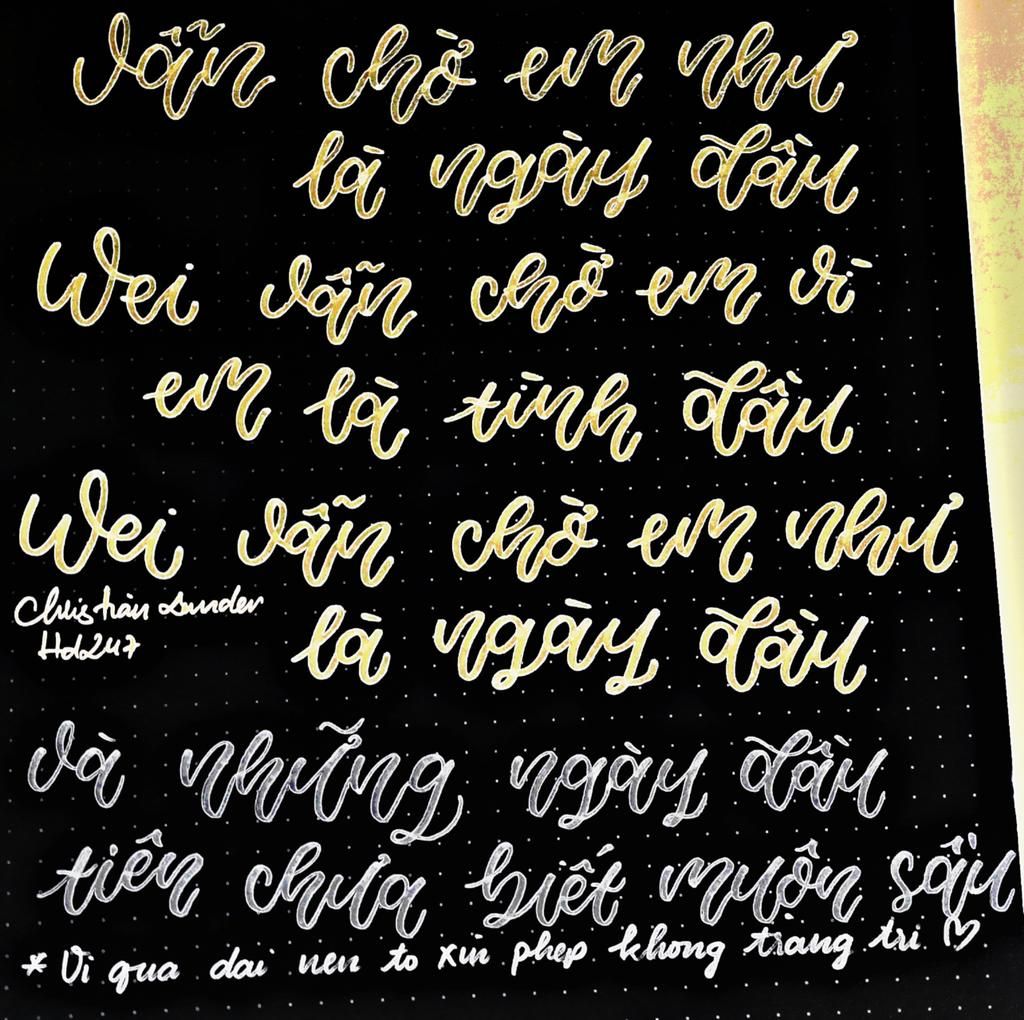 Vẫn chờ em như
là ngày đầu
Wei vẫn chờ em vì
em là tình đầu
Wei vẫn chờ em như
là ngày đầu
Christian Sunder
Hd247
và những ngày đầu
tiên chưa biết muộn sầu
* Vì qua dai nen to xin phep khong trang tri ♡